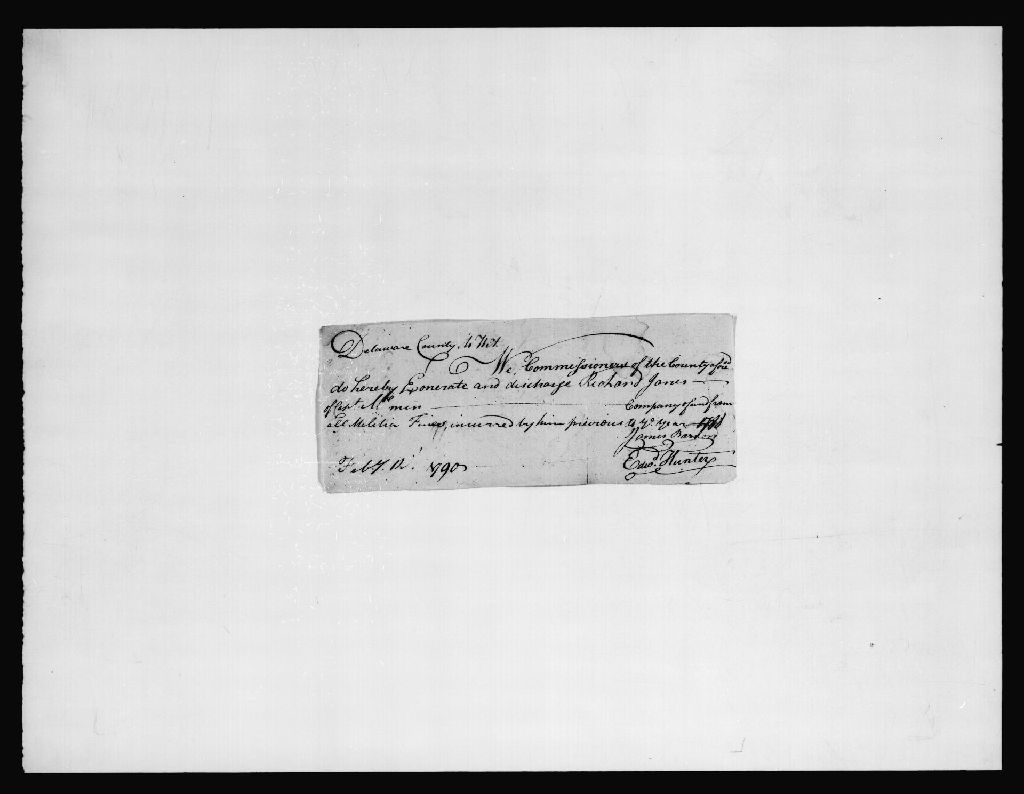 Delaware County, to Wit.
We, Commissioners of the County afsd
do hereby Exonerate and discharge Richard Jones
of Capt. Company of and from
all Militia Fines, incurred by him previous to ye. year
James Barnard
Feby. 12. 1790 Edwd. Hunter